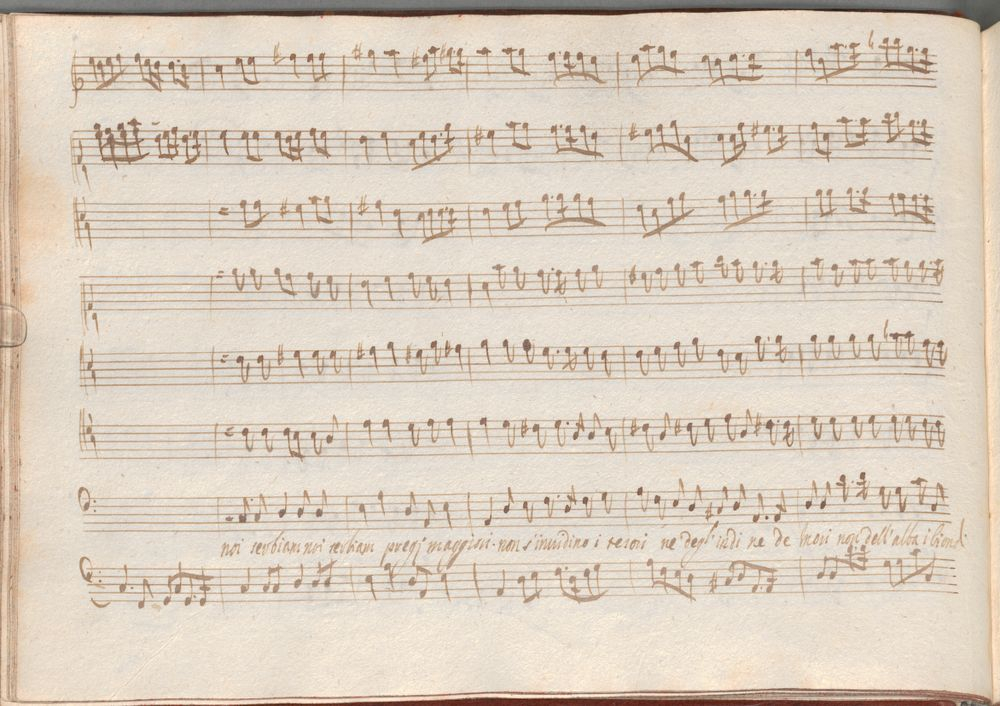 noi serbiam noi serbiam pregi maggiori non s'invidino i tesori ne degl'indi ne de mori non dell'alba i biondi